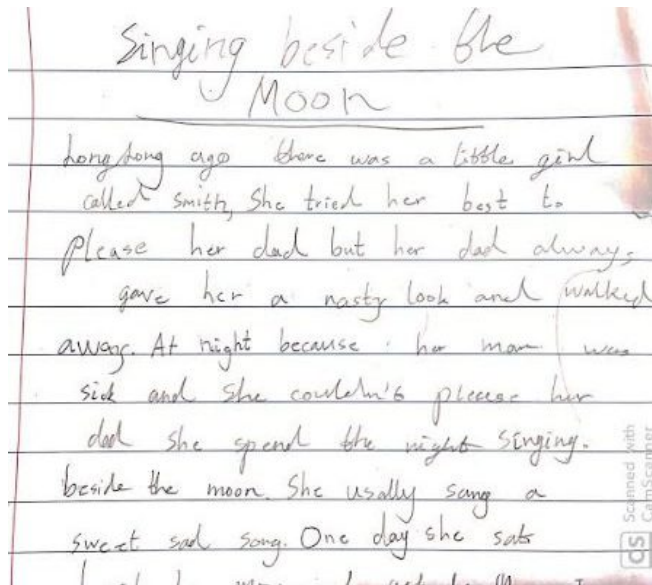 Singing beside the
Moon
Long Long ago there was a little girl
called Smith, She tried her best to
please her dad but her dad always
gave her a nasty look and walked
away. At night because her mom was
sick and she couldn't please her
dad she spend the night singing.
beside the moon. She usally sang a
sweet sad song. One day she sat
Scanned with
CamScanner
CS